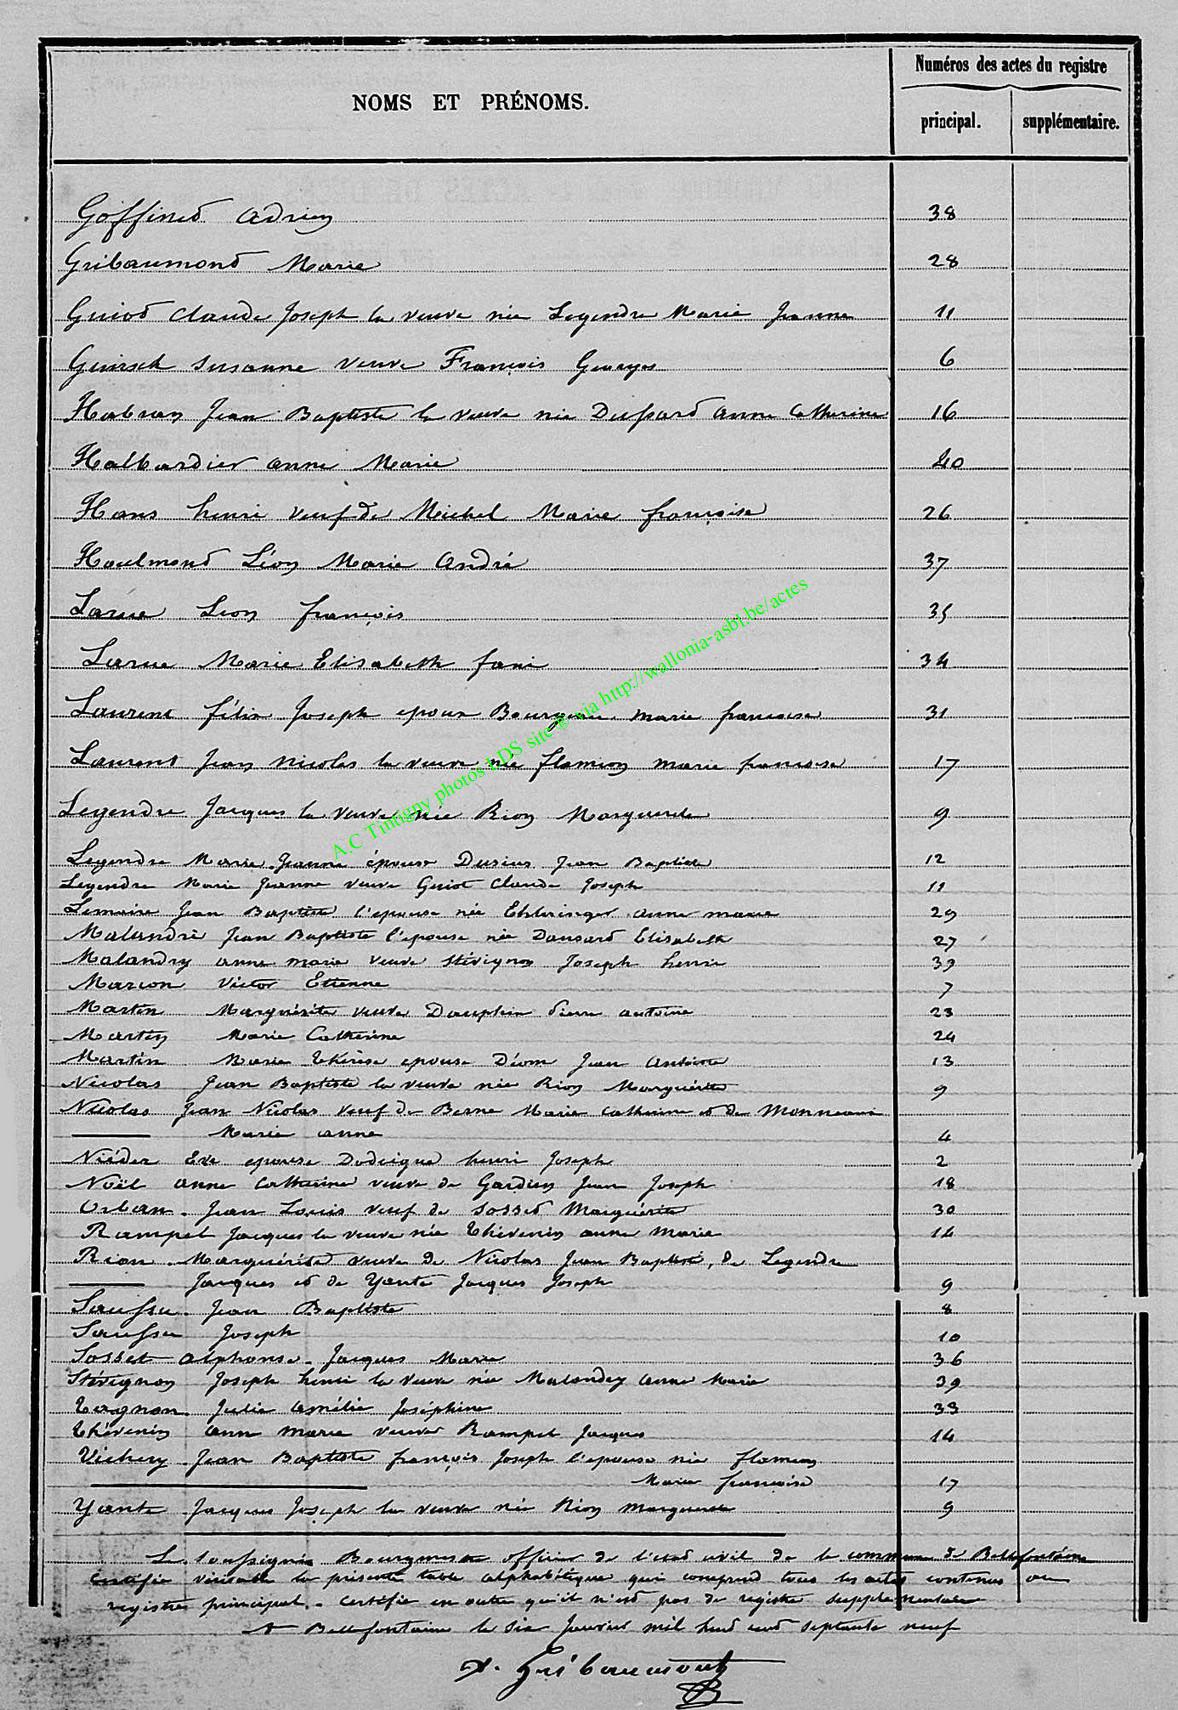 NOMS ET PRÉNOMS.
Numéros des actes du registre
principal.
supplémentaire.
Goffinet Adrien 38
Gribaumont Marie 28
Guiot Claude Joseph la veuve née Legendre Marie Jeanne 11
Guirsch Susanne veuve François Georges 6
Habran Jean Baptiste la veuve née Dussard Anne Catherine 16
Halbardier Anne Marie 20
Hans henri veuf de Michel Marie françoise 26
Haulmond Léon Marie André 37
Larue Léon françois 35
Larue Marie Elisabeth fani 34
Laurent félix Joseph epoux Bourguin marie françoise 31
Laurent Jean Nicolas la veuve née flamion marie françoise 17
Legendre Jacques la veuve née Rion Marguerite 9
Legendre Marie Jeanne épouse Durieux Jean Baptiste 12
Legendre Marie Jeanne veuve Guiot Claude Joseph 11
Lemaire Jean Baptiste l'epouse née Ehleringer anne marie 29
Malandré Jean Baptiste l'epouse née Dansard Elisabeth 27
Malandry anne marie veuve Stévignon Joseph henri 39
Marion Victor Etienne 7
Martin Marguérite veuve Dauphin Pierre antoine 23
Martin Marie Catherine 24
Martin Marie Thérèse epouse Déom Jean Antoine 13
Nicolas Jean Baptiste la veuve née Rion Marguérite 9
Nicolas Jean Nicolas veuf de Berne Marie Catherine et de Monneaux
Marie anne 4
Niéder Eve epouse Dodrigue henri Joseph 2
Noël anne Catherine veuve de Gardien Jean Joseph 18
Orban Jean Louis veuf de Sosset Marguérite 30
Rampet Jacques la veuve née Thévenin anne Marie 14
Rion Marguérite veuve de Nicolas Jean Baptiste, de Legendre
Jacques et de Yante Jacques Joseph 9
Saussu Jean Baptiste 8
Saussu Joseph 10
Sosset alphonse Jacques Marie 36
Stévignon Joseph henri la veuve née Malandry Anne Marie 39
Tagnon Julie Amélie Joséphine 33
Thévenin Ann marie veuve Rampet Jacques 14
Vichery Jean Baptiste françois Joseph l'epouse née flamion
Marie françoise 17
Yante Jacques Joseph la veuve née Rion Marguerite 9
Le soussigné Bourgmestre officier de l'etat civil de la commune de Bellefontaine
certifie véritable la présente table alphabétique qui comprend tous les actes contenus au
registre principal. certifie en outre qu'il n'est pas de registre supplémentaire
A Bellefontaine le six Janvier mil huit cent septante neuf
A. Gribaumont
A.C Tintigny photos LDS site © via http://wallonia-asbl.be/actes